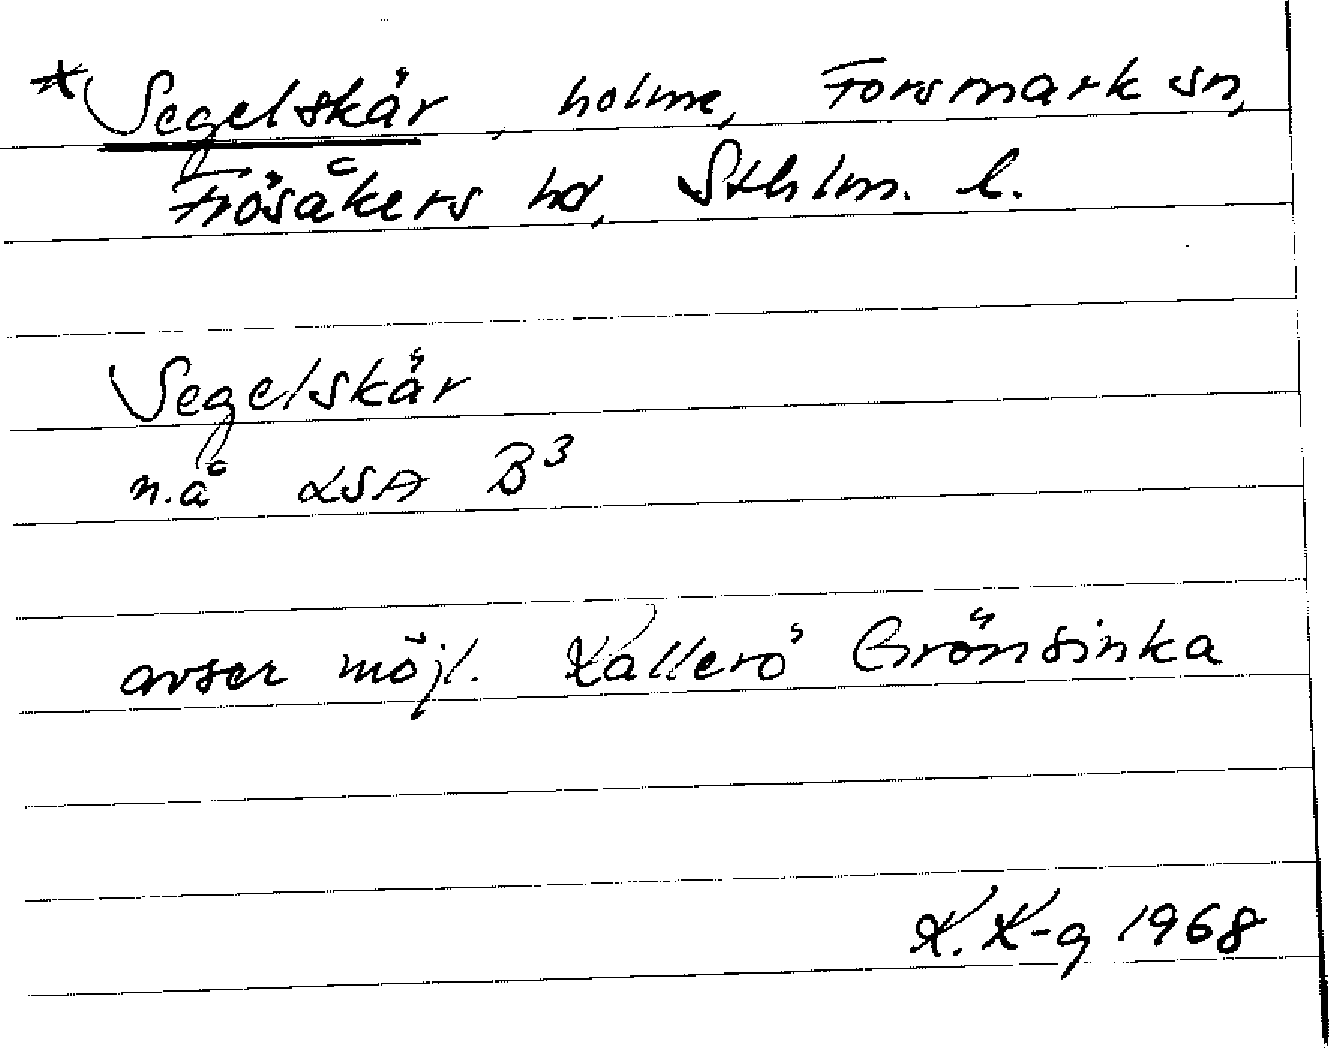 *Segelskär, holme, Forsmark sn,
Frösåkers hd, Sthlm. l.
Segelskär
n.å LSA B³
avser möjl. Kallerö Grönsinka
K. K-g 1968